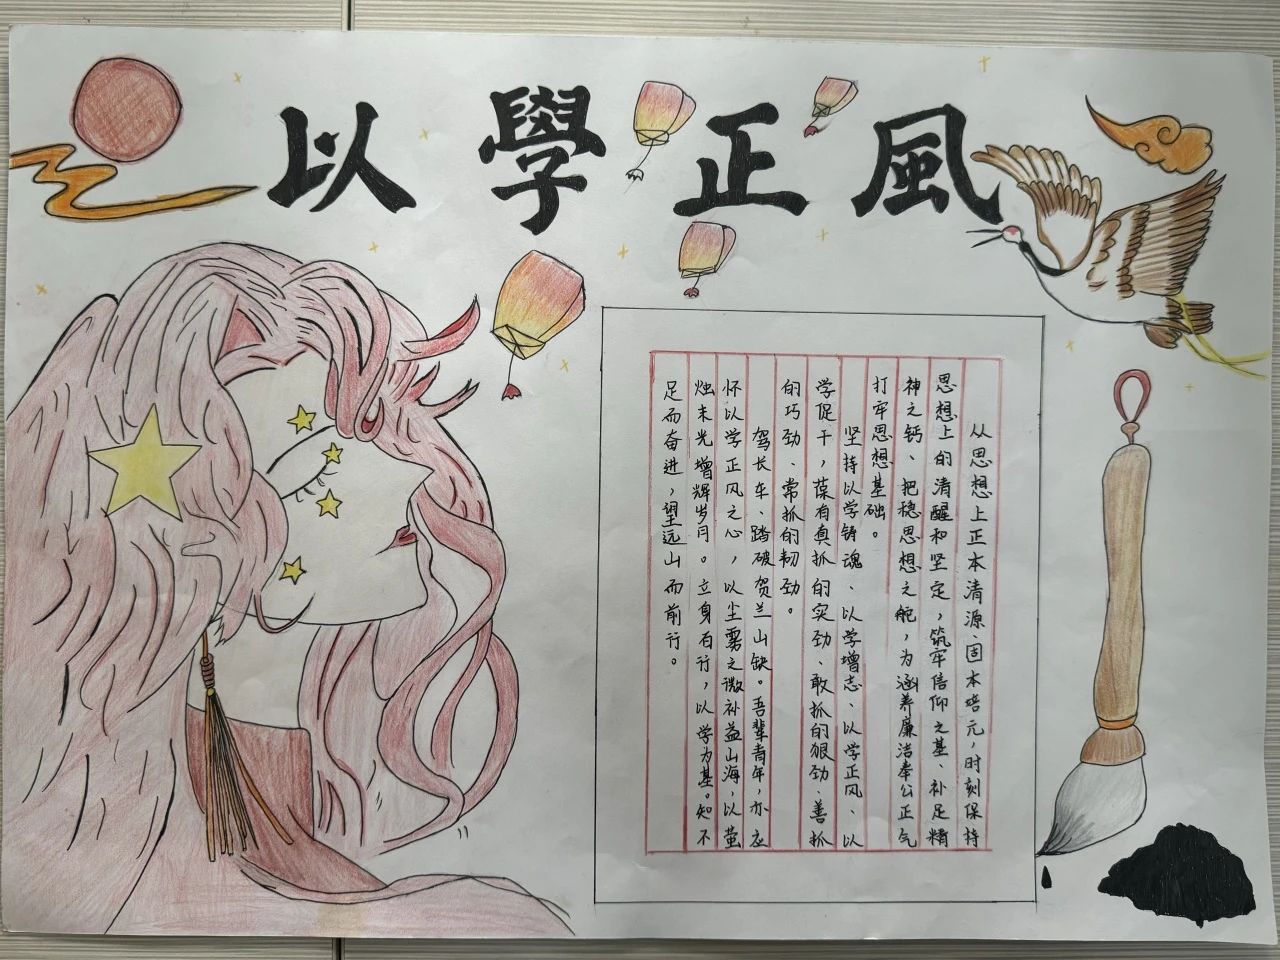 以學正風
从思想上正本清源、固本培元，时刻保持
思想上的清醒和坚定，筑牢信仰之基、补足精
神之钙、把稳思想之舵，为涵养廉洁奉公正气
打牢思想基础。
坚持以学铸魂、以学增志、以学正风、以
学促干，葆有真抓的实劲、敢抓的狠劲、善抓
的巧劲、常抓的韧劲。
驾长车、踏破贺兰山缺。吾辈青年，亦应
怀以学正风之心，以尘雾之微补益山海，以萤
烛末光增辉岁月。立身百行，以学为基。知不
足而奋进，望远山而前行。